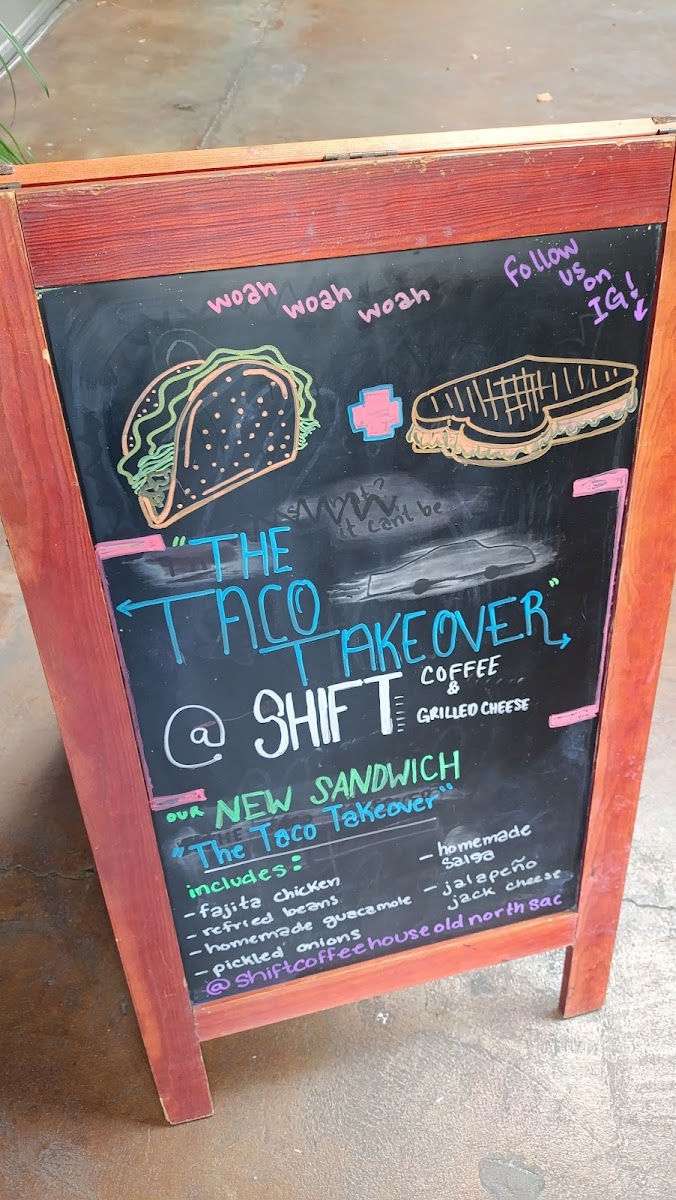 woah woah woah
Follow
us
on
IG!
it can't be
"THE
TACO
TAKEOVER"
@ SHIFT
COFFEE
&
GRILLED CHEESE
OUR NEW SANDWICH
"The Taco Takeover"
includes:
- fajita chicken
- refried beans
- homemade guacamole
- pickled onions
- homemade
salsa
- jalapeño
jack cheese
@shiftcoffeehouseoldnorthsac